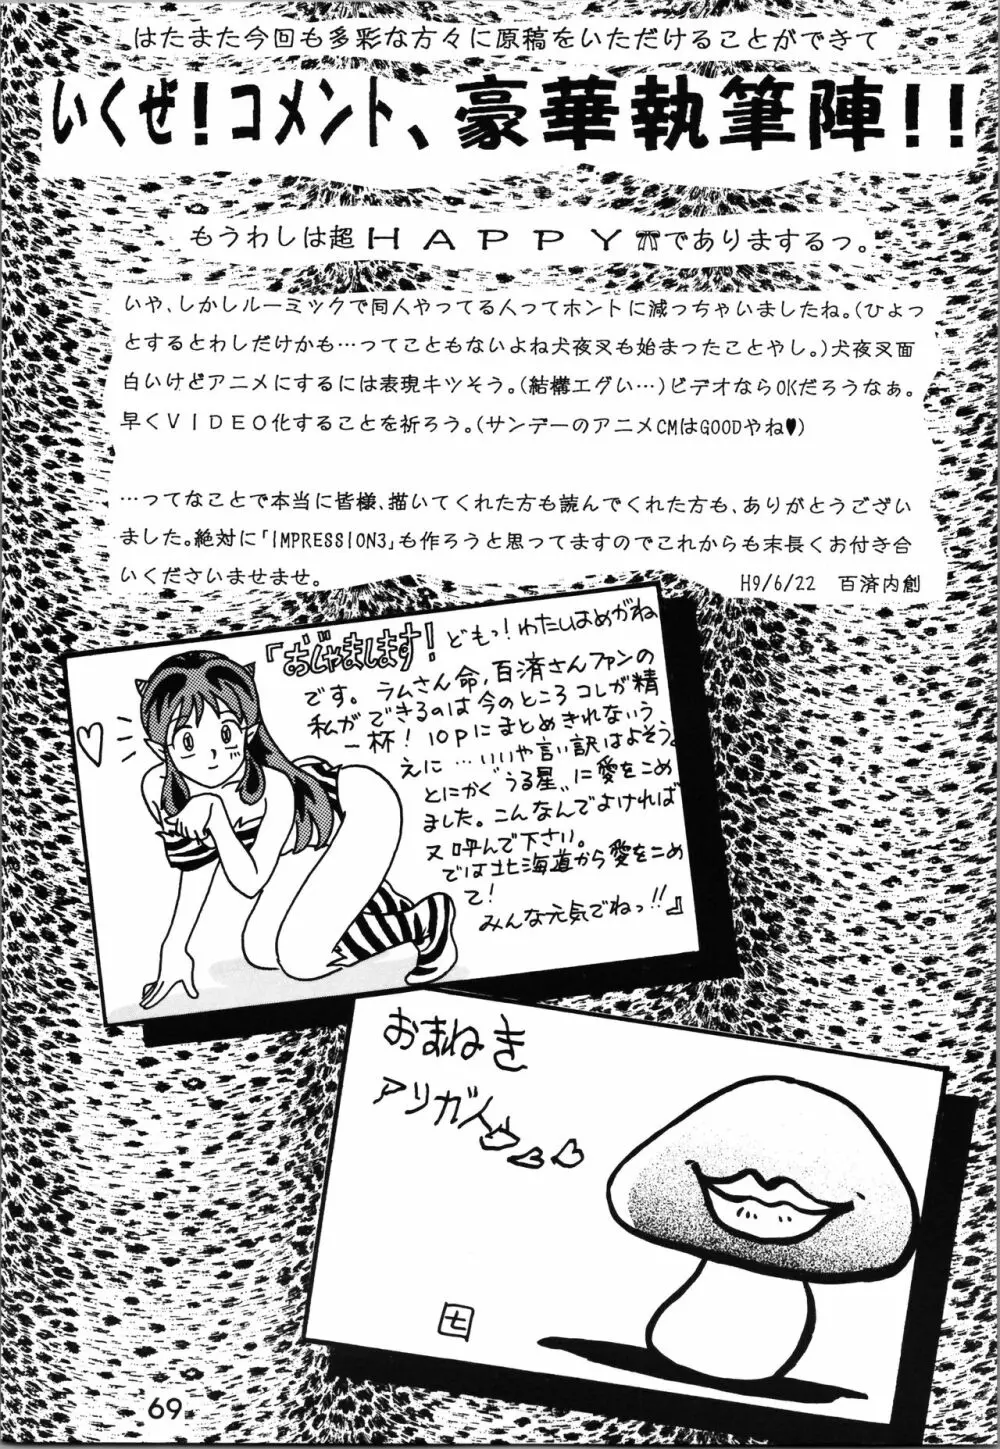 はたまた今回も多彩な方々に原稿をいただけることができて
いくぜ！コメント、豪華執筆陣！！
もうわしは超ＨＡＰＰＹでありまするっ。
いや、しかしルーミックで同人やってる人ってホントに減っちゃいましたね。(ひょっ
とするとわしだけかも…ってこともないよね犬夜叉も始まったことやし。)犬夜叉面
白いけどアニメにするには表現キツそう。(結構エグい…)ビデオならOKだろうなぁ。
早くＶＩＤＥＯ化することを祈ろう。(サンデーのアニメCMはGOODやね♥)
…ってなことで本当に皆様、描いてくれた方も読んでくれた方も、ありがとうござい
ました。絶対に「IMPRESSION3」も作ろうと思ってますのでこれからも末長くお付き合
いくださいませませ。
H9/6/22　百済内創
「おじゃまします！どもっ！わたしはめがね
です。ラムさん命，百済さんファンの
私ができるのは今のところコレが精
一杯！10Pにまとめきれないう
えに…いいや言い訳はよそう。
とにかく“うる星”に愛をこめ
ました。こんなんでよければ
又呼んで下さい。
では北海道から愛をこめ
て！
みんな元気でねっ!!』
おまねき
アリガト♡♡♡
七
69